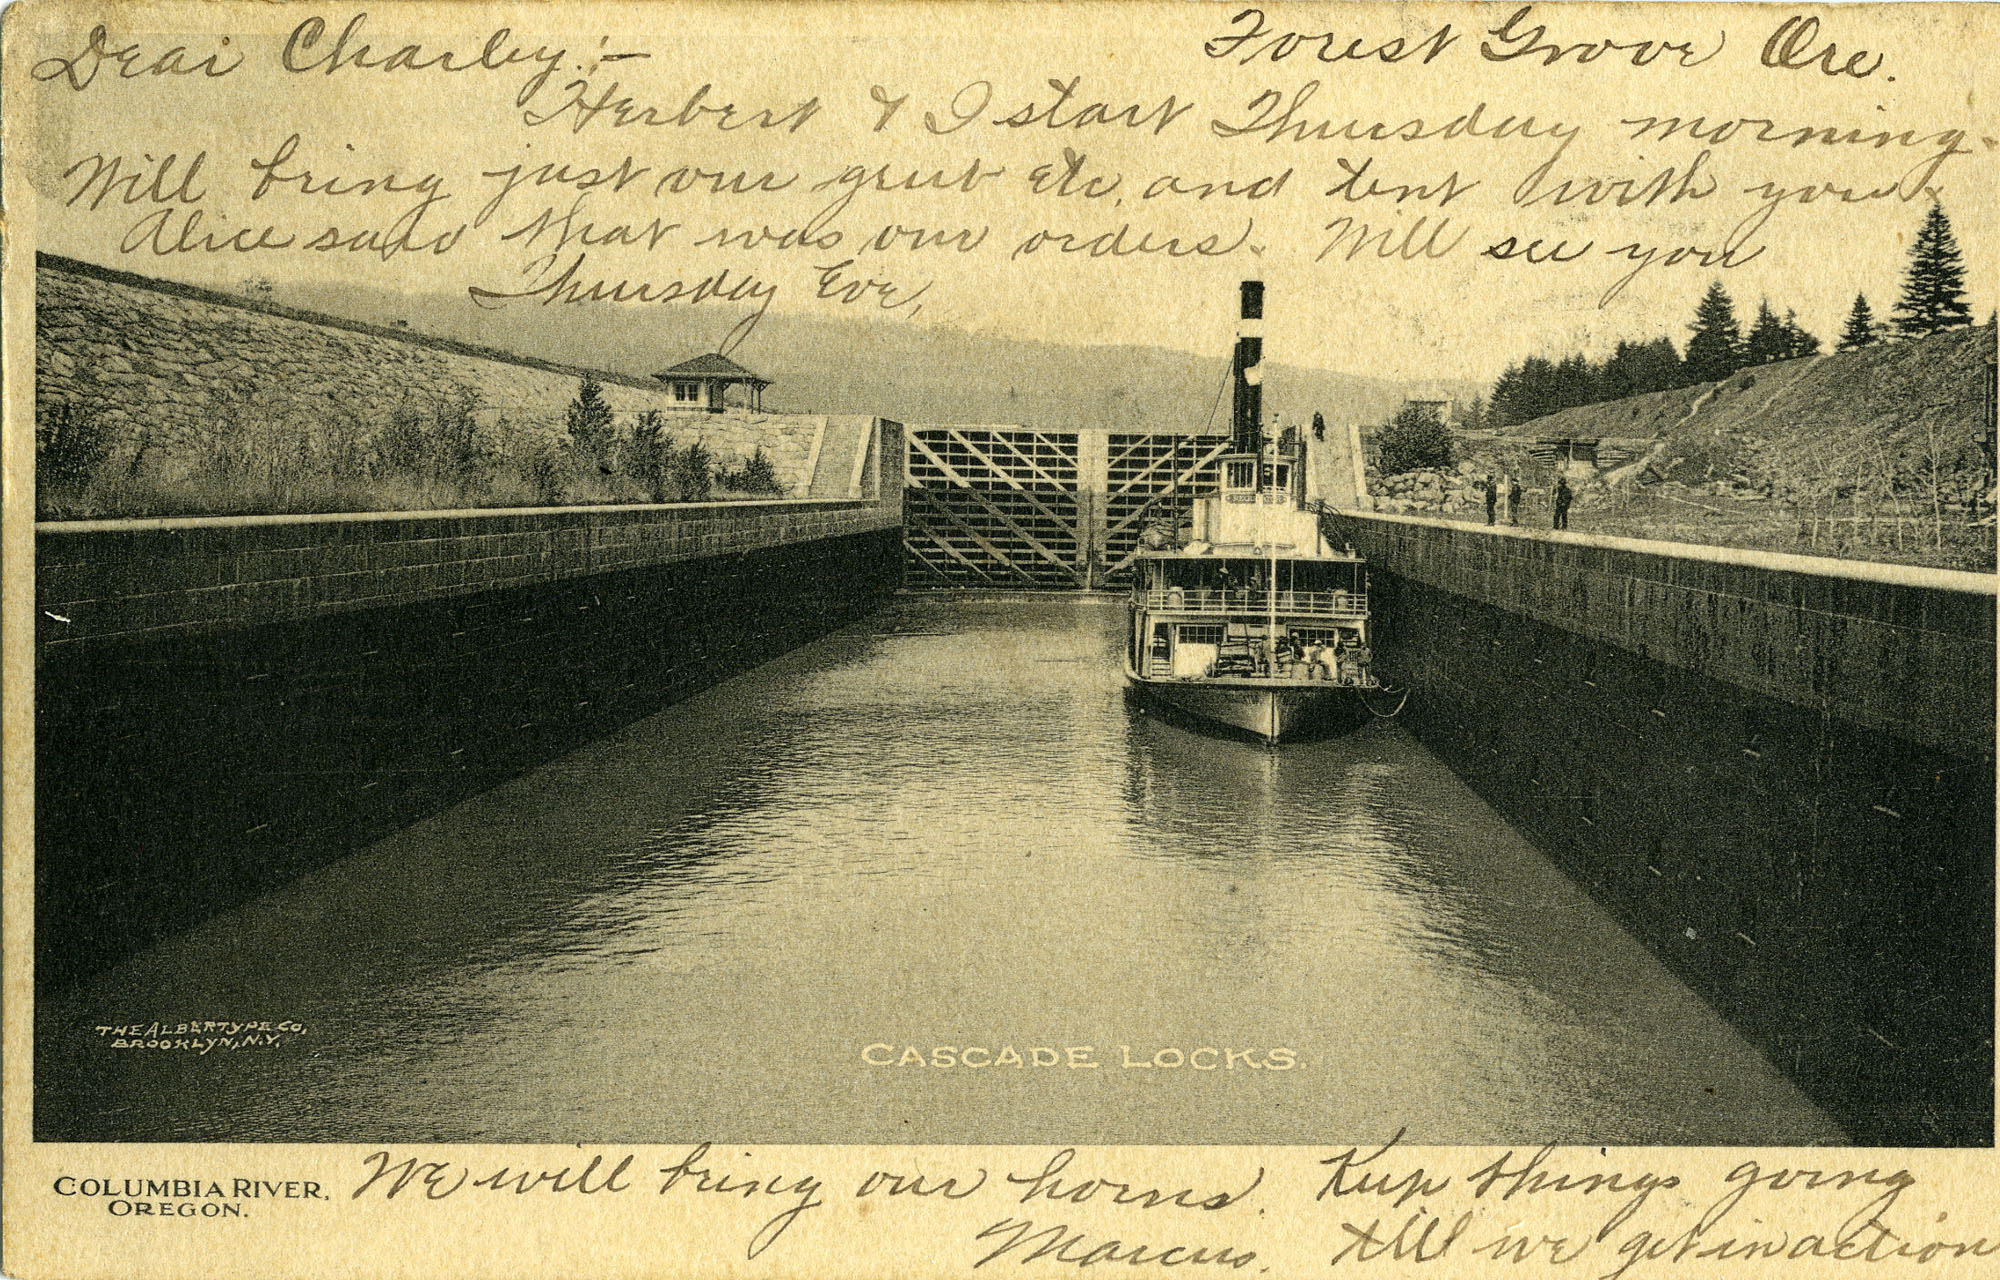 Dear Charley:- Forest Grove Ore.
Herbert & I start Thursday morning.
Will bring just our grub etc, and tent with you
Alice said that was our orders. Will see you
Thursday Eve,
THE ALBERTYPE CO,
BROOKLYN, N.Y.
CASCADE LOCKS.
COLUMBIA RIVER,
OREGON.
We will bring our horns. Keep things going
Marcus. till we get in action